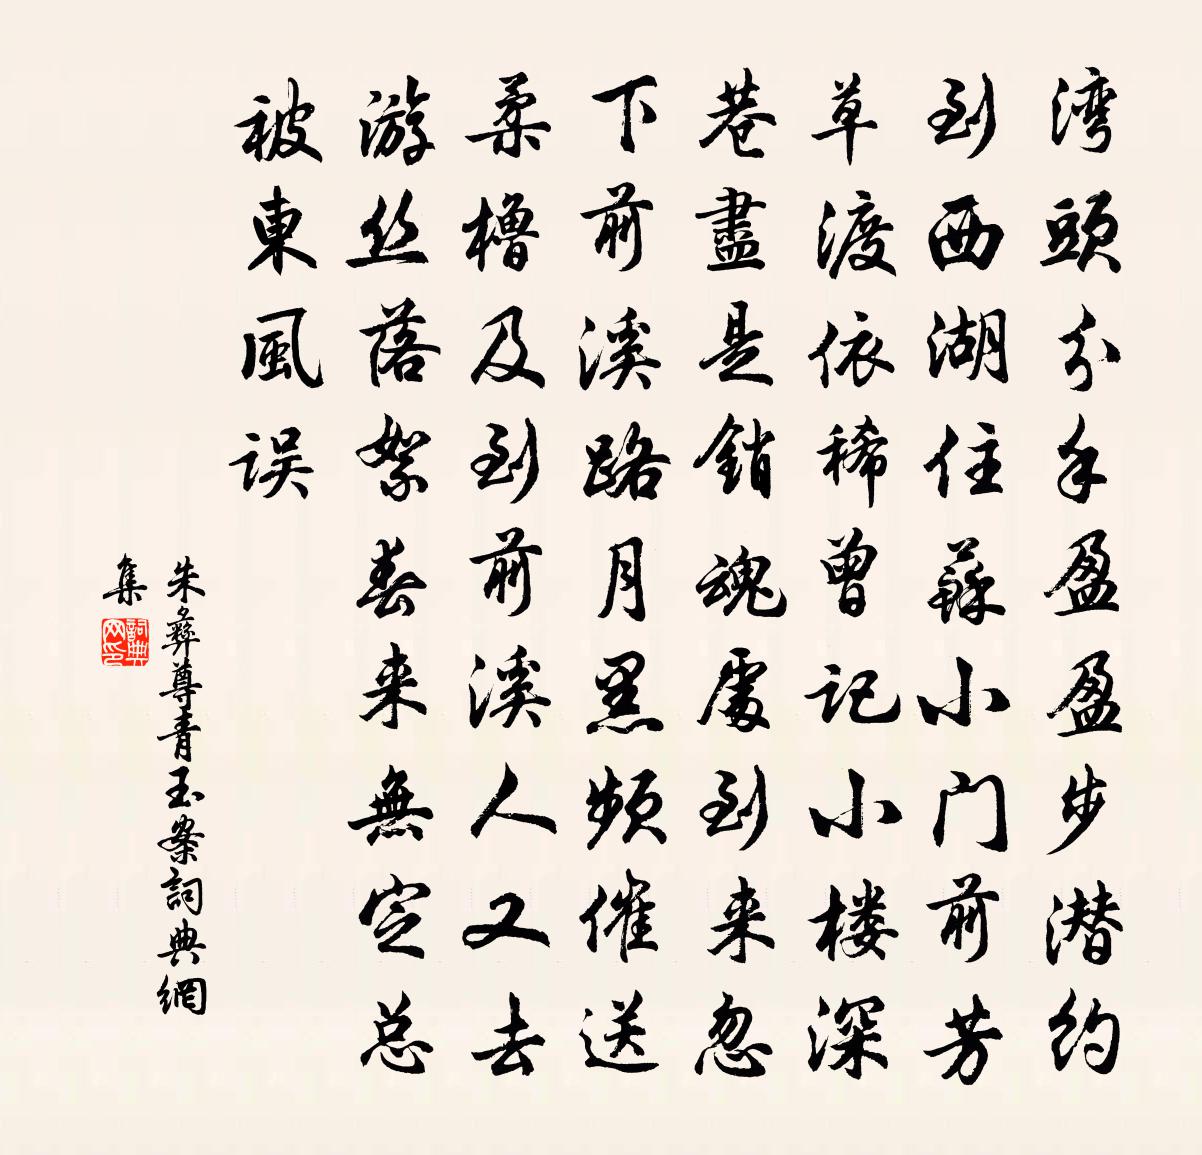 湾頭分手盈盈步潜约
到西湖住蘇小门前芳
草渡依稀曾记小楼深
巷盡是銷魂處到来忽
下前溪路月黑频催送
柔櫓及到前溪人又去
游丝落絮春来無定总
被東風误
朱彝尊青玉案詞典網
集
詞典网印